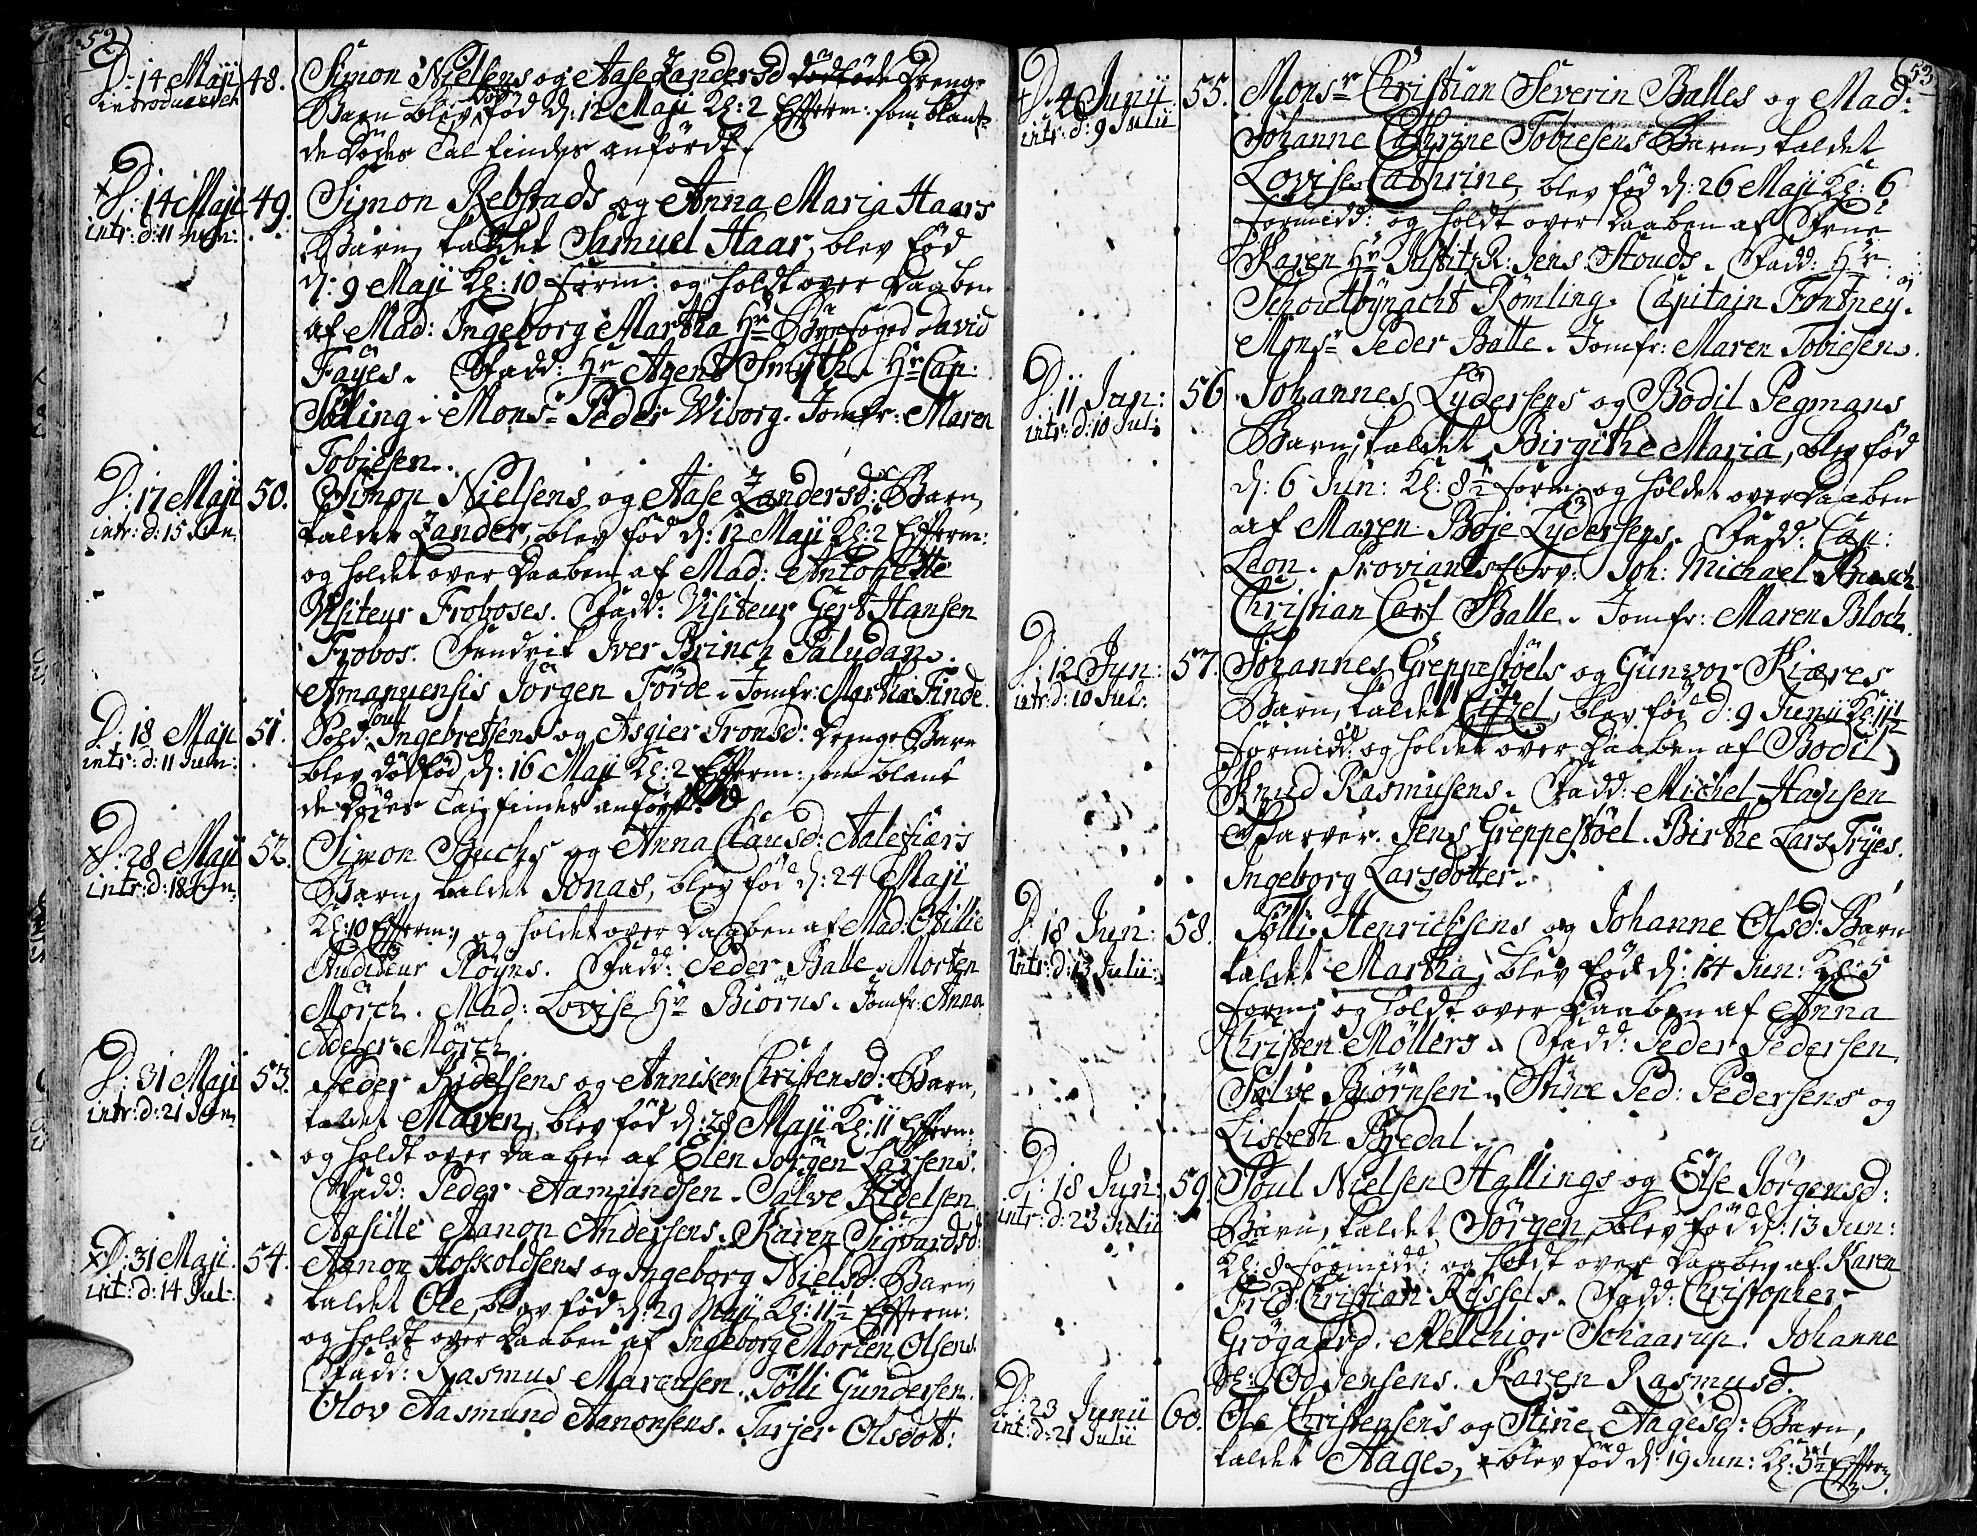 52
D: 14 Maji
introduceret
48.
Simon Nielsens og Aase Zandersd dödföde Drenge
Barn blev död fød d: 12 Maji Kl: 2 Efterm: som blant
de Dödes Tal findes anfördt.
D: 14 Maji
intr: d: 11 Jun:
49.
Simon Rebstads og Anna Maria Haars
Barn, kaldet Samuel Haar, blev fød
d: 9 Maji Kl: 10 form: og holdt over Daaben
af Mad: Ingeborg Martha Hr Byefoged David
Fayes. Fadd: Hr Agent Smyth. Hr Cap:
Söling. Monsr Peder Wiborg. Jomfr: Maren
Tobiesen.
D: 17 Maji
intr: d: 15 Jun
50.
Simon Nielsens og Aase Zandersd: Barn,
kaldet Zander, blev fød d: 12 Maji Kl: 2 Efterm:
og holdet over Daaben af Mad: Antonette
Visiteur Froboses. Fadd: Visiteur Gert Hansen
Frobos. Fendrik Iver Brinch Paludan.
Amanuensis Jörgen Förde. Jomfr: Martha Finde.
D: 18 Maji
intr: d: 11 Jun:
51.
Poul Ingebretsens og Asgier Tronsd: Drenge Barn
blev dödfød d: 16 Maji Kl: 2 Efterm: som blant
de Dödes Tal findes anfört.
D: 28 Maji
intr: d: 18 Jun
52.
Simon Buchs og Anna Clausd: Aalefiærs
Barn, kaldet Jonas, blev fød d: 24 Maji
Kl: 10 Efterm:, og holdet over Daaben af Mad: Otilie
Auditeur Röyns. Fadd: Peder Balle. Morten
Mörch. Mad: Lovise Hr Biörns. Jomfr: Anna
Adeler Mörch.
D: 31 Maji
intr: d: 21 Jun
53.
Peder Kidelsens og Anniken Christensd: Barn,
kaldet Maren, blev fød d: 28 Maji Kl: 11 Efterm:
og holdt over Daaben af Elen Jörgen Larsens.
Fadd: Peder Aamundsen. Salve Kidelsen
Aasille Aanon Andersens. Karen Sigvardsd:
D: 31 Maji
int: d: 14 Jul:
54.
Aanon Hoskoldsens og Ingeborg Nielsd: Barn,
kaldet Ole, blev fød d: 29 Maji Kl: 11½ Efterm:
og holdt over Daaben af Ingeborg Morten Olsens.
Fadd: Rasmus Marcusen. Tölli Gundersen.
Olov Aasmund Aanonsens. Tarjer Olsdott:
53
D: 4 Junij
intr: d: 9 Julii
55.
Monsr Christian Severin Balles og Mad:
Johanne Cathrine Tobiesens Barn, kaldet
Lovise Cathrine, blev fød d: 26 Maji Kl: 6
formidd: og holdt over Daaben af Frue
Karen Hr Justitz R: Jens Stouds. Fadd: Hr
Schoutbynacht Römling. Capitain Fontney.
Monsr Peder Balle. Jomfr: Maren Tobiesen.
D: 11 Jun:
intr: d: 10 Jul:
56.
Johannes Lydersens og Bodil Pegmans
Barn, kaldet Birgithe Maria, blev fød
d: 6 Jun: Kl: 8½ form: og holdet over Daaben
af Maren Boje Lydersens. Fadd: Cap:
Leon. Proviantsforv: Joh: Michael
Christian Carl Balle. Jomfr: Maren Bloch.
D: 12 Jun:
intr: d: 10 Jul:
57.
Johannes Greppestöels og Gunvor Kiæres
Barn, kaldet Citzel, blev fød d: 9 Junii Kl: 11½
formidd: og holdet over Daaben af Bodil
Knud Rasmusens. Fadd: Michel Hansen
Farver. Jens Greppestöel. Birthe Lars Fryes.
Ingeborg Larsdotter.
D: 18 Jun:
intr: d: 13 Julii
58.
Tölli Henrichsens og Johanne Olsd: Barn
kaldet Martha, blev fød d: 14 Jun: Kl: 5
form: og holdt over Daaben af Anna
Christen Möllers. Fadd: Peder Pedersen.
Salve Biörnsen. Stine Ped: Pedersens og
Lisbeth Bredal.
D: 18 Jun:
intr: d: 23 Julii
59.
Poul Nielsen Hallings og Else Jörgensd:
Barn, kaldet Jörgen, blev fød d: 13 Jun:
Kl: 8 formidd: og holdt over Daaben af Karen
Fred: Christian Ryssels. Fadd: Christopher
Grögaard. Melchior Schaarup. Johanne
Jensens. Karen Rasmusd.
D: 23 Junii
int: d: 21 Julii
60.
Ole Christensens og Stine Aagesd: Barn,
kaldet Aage, blev fød d: 19 Jun: Kl: 5½ Efterm